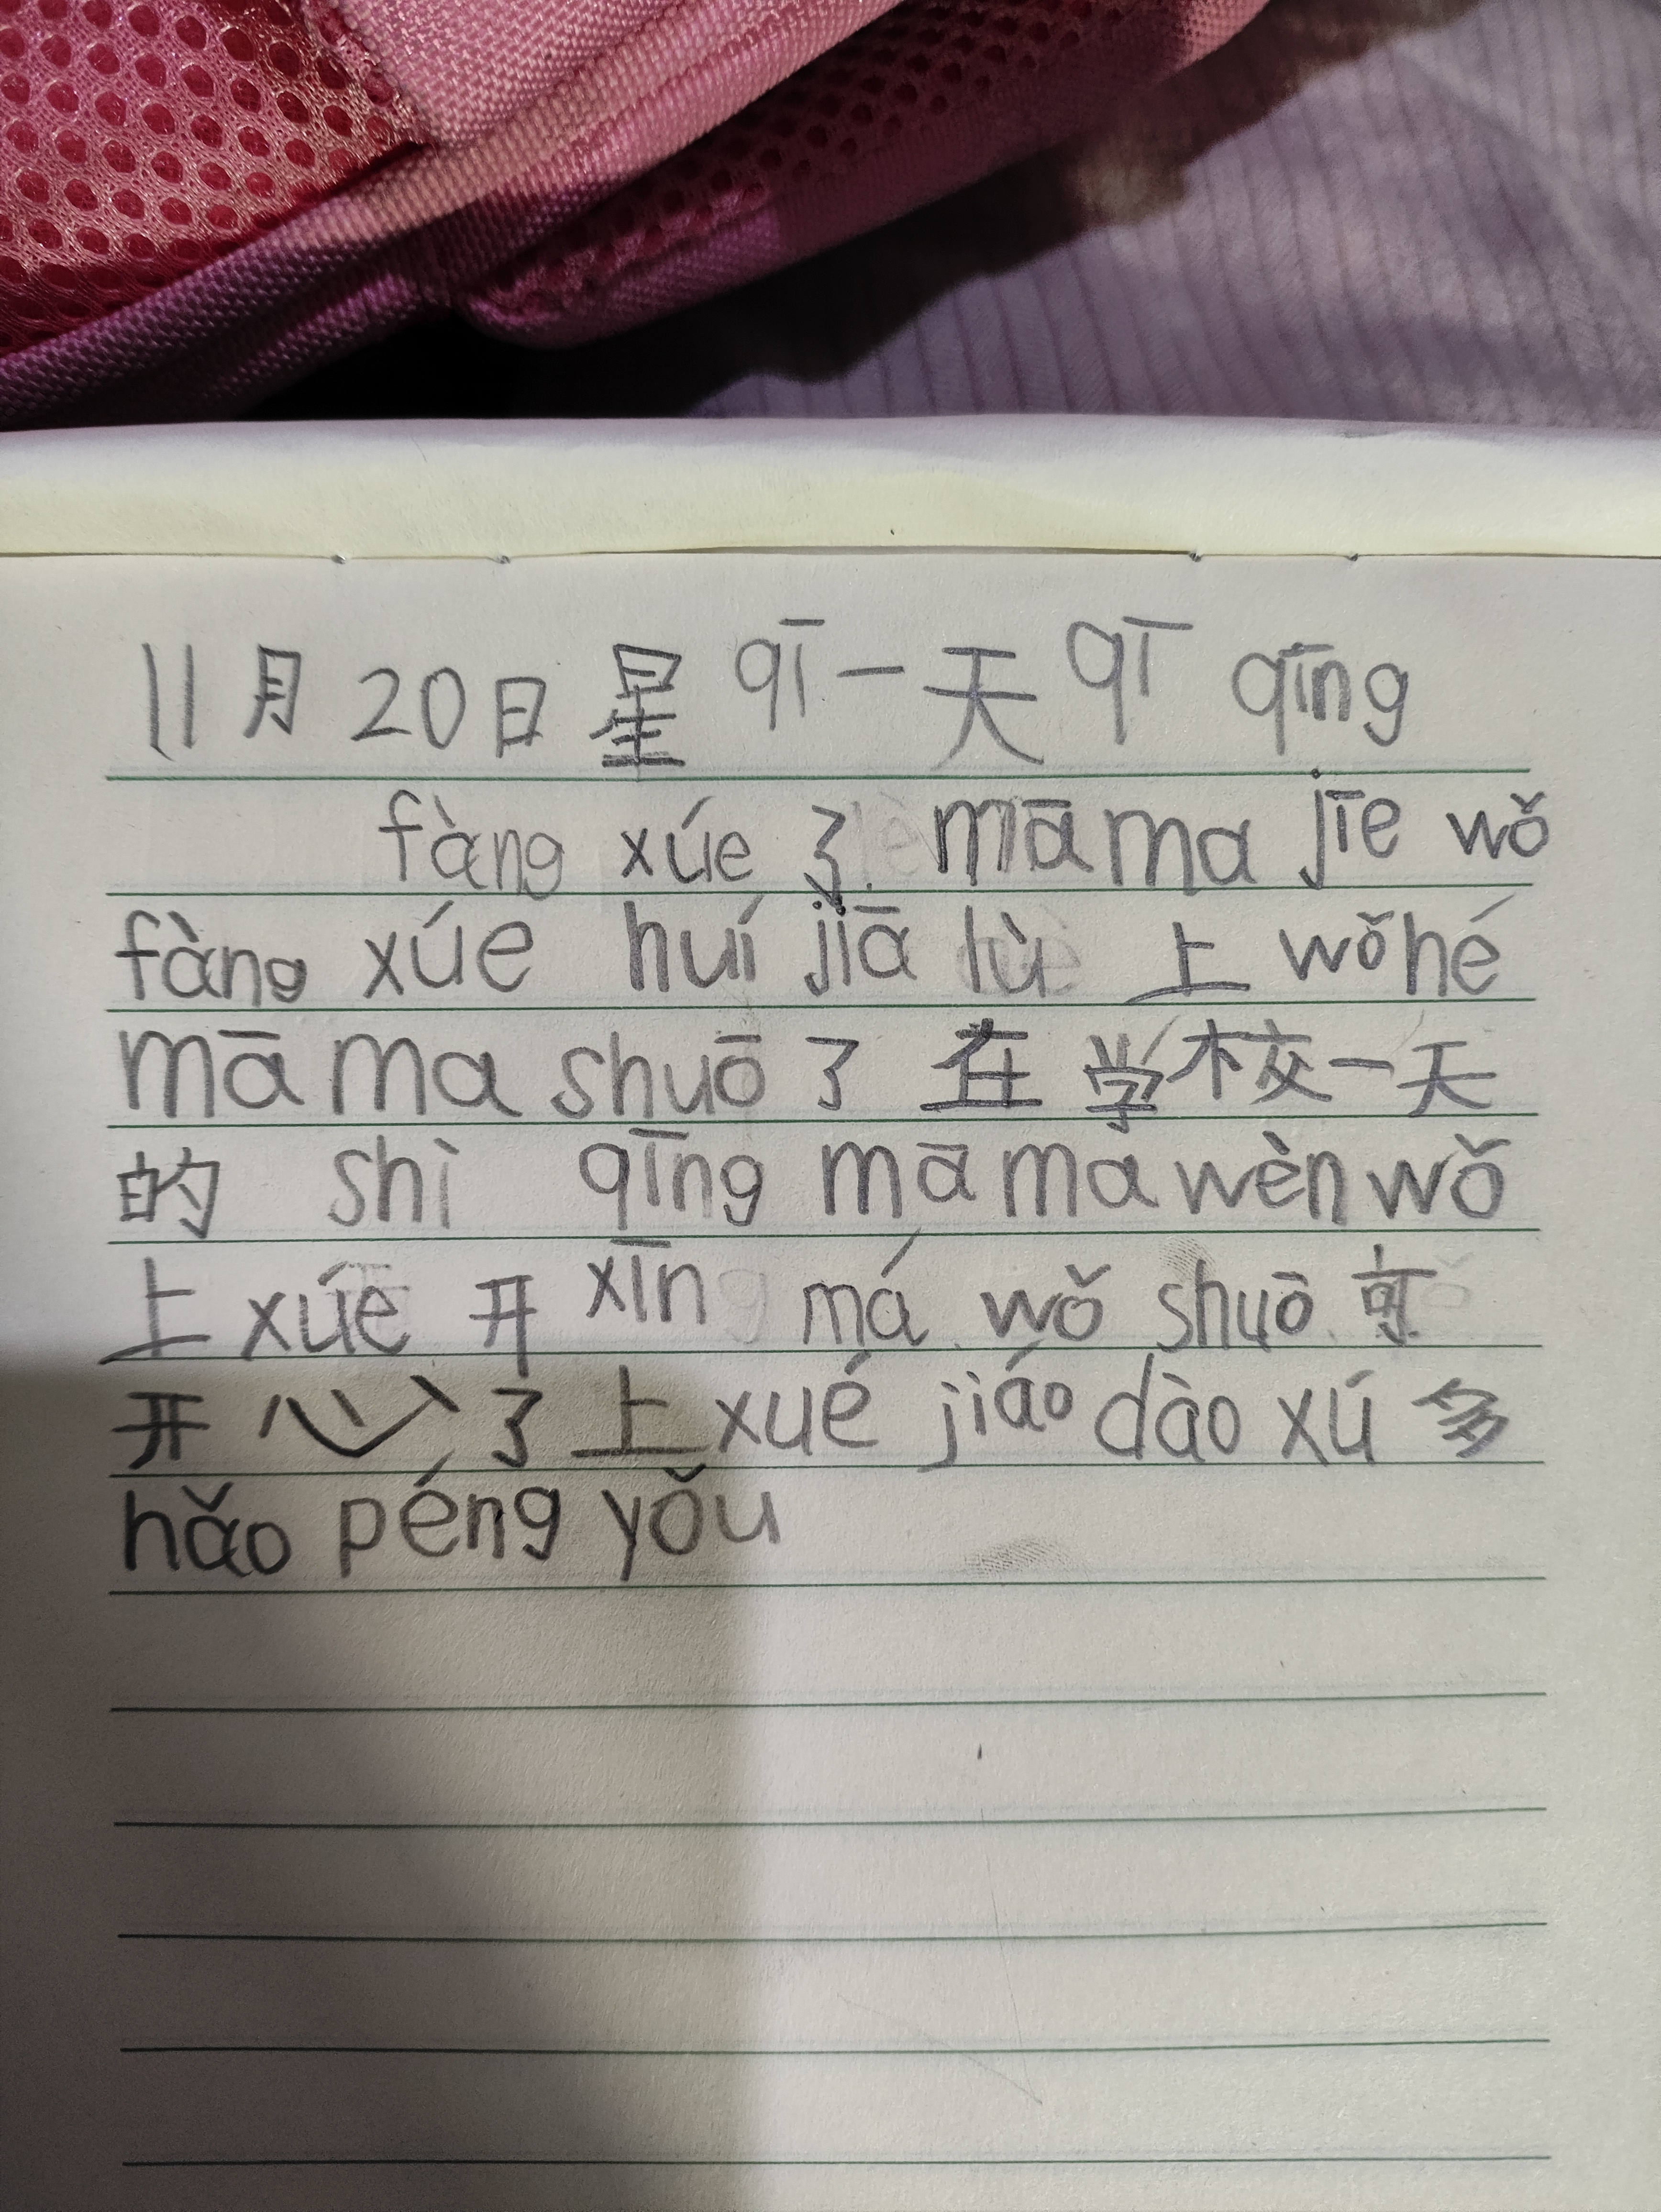 11月20日星qī一天qī qīng
fàng xúe 了 māma jīe wǒ
fàng xúe huí jiā lù 上 wǒ hé
māma shuō了在学校一天
的 shì qīng māma wèn wǒ
上 xúe 开 xīn má wǒ shuō 可
开心了上 xué jiáo dào xú 多
hǎo péng yǒu